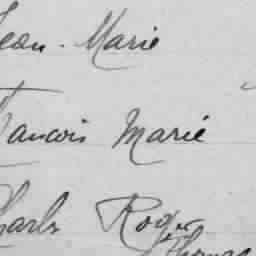 Jean-Marie
Francois Marie
Charles Roger
Thomas